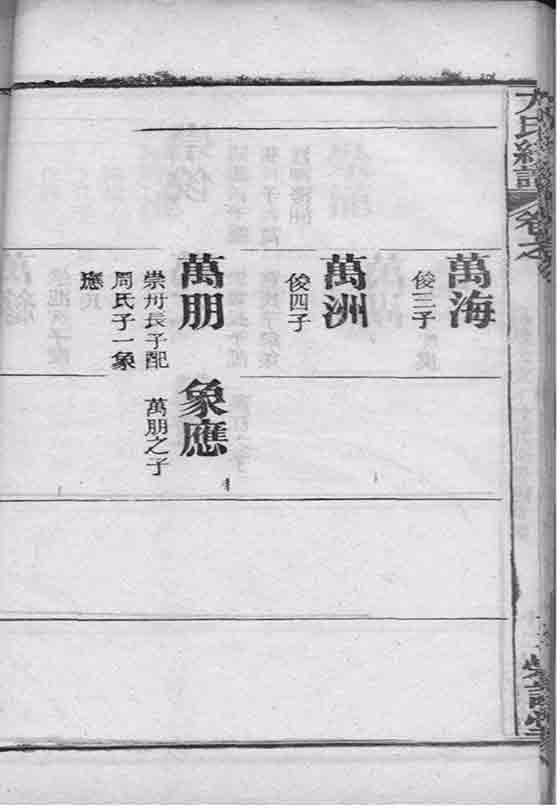 萬海
俊三子
萬洲
俊四子
萬朋
崇州長子配
周氏子一象
應
象應
萬朋之子